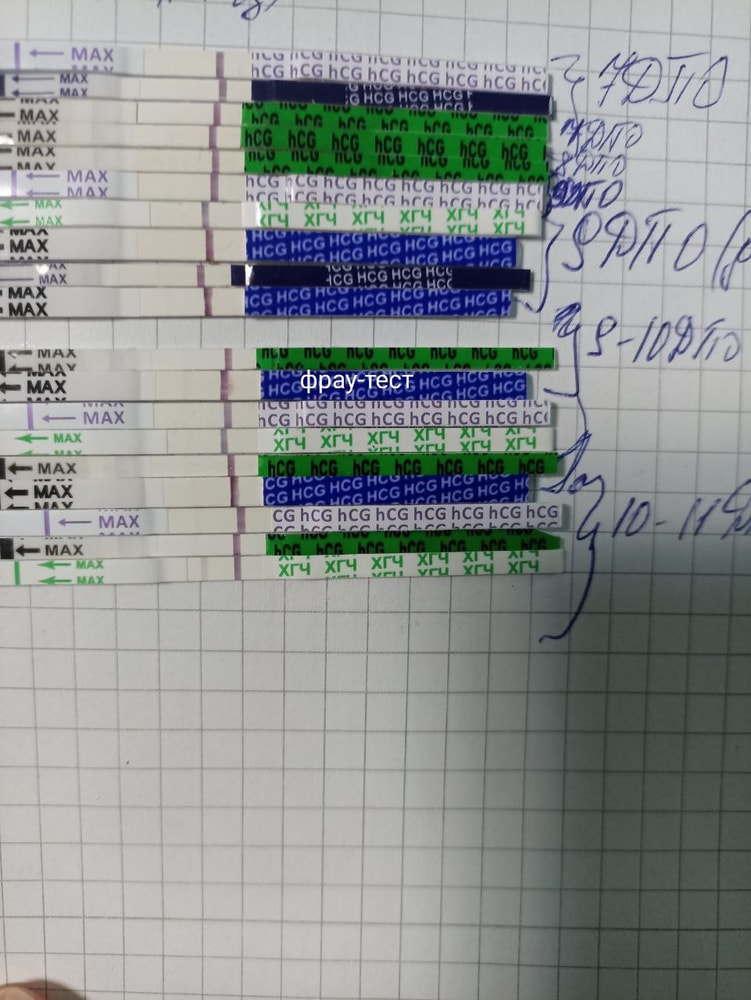 ← MAX hCG hCG hCG hCG hCG hCG hCG
7ДПО
← MAX HCG HCG HCG HCG
← MAX
MAX hCG hCG hCG hCG hCG hCG
MAX hCG hCG hCG hCG hCG hCG hCG
7ДПО
MAX
← MAX hCG hCG hCG hCG hCG hCG hCG
← MAX ХГЧ ХГЧ ХГЧ ХГЧ ХГЧ ХГЧ
← MAX
MAX HCG HCG HCG HCG HCG HCG
9ДПО
MAX HCG HCG HCG HCG
MAX HCG HCG HCG HCG HCG HCG
MAX
← MAX hCG hCG hCG hCG hCG hCG hCG
9-10ДПО
← MAX фрау-тест HCG HCG HCG HCG HCG HCG
← MAX hCG hCG hCG hCG hCG hCG hCG
← MAX ХГЧ ХГЧ ХГЧ ХГЧ ХГЧ ХГЧ
← MAX hCG hCG hCG hCG hCG hCG hCG
← MAX CG HCG HCG HCG HCG HCG HCG
← MAX CG hCG hCG hCG hCG hCG hCG
10-11Д
← MAX hCG hCG hCG hCG hCG hCG hCG
← MAX ХГЧ ХГЧ ХГЧ ХГЧ ХГЧ ХГЧ
← MAX